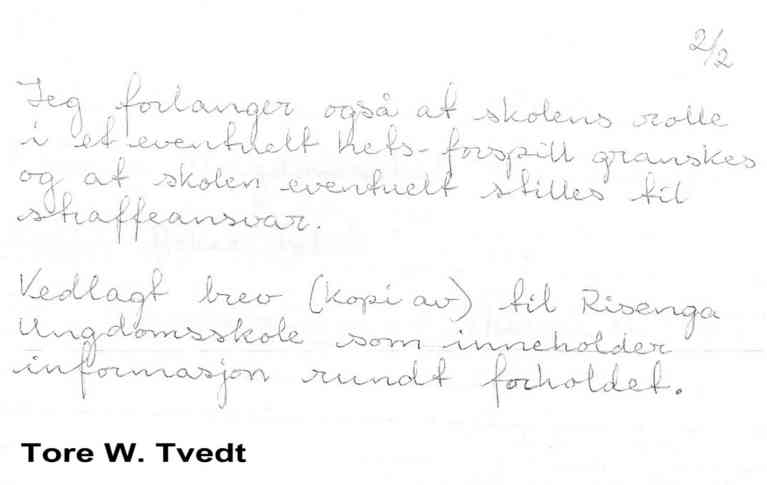 2/2
Jeg forlanger også at skolens rolle
i et eventuelt hets-forspill granskes
og at skolen eventuelt stilles til
straffeansvar.
Vedlagt brev (kopi av) til Risenga
Ungdomsskole som inneholder
informasjon rundt forholdet.
Tore W. Tvedt